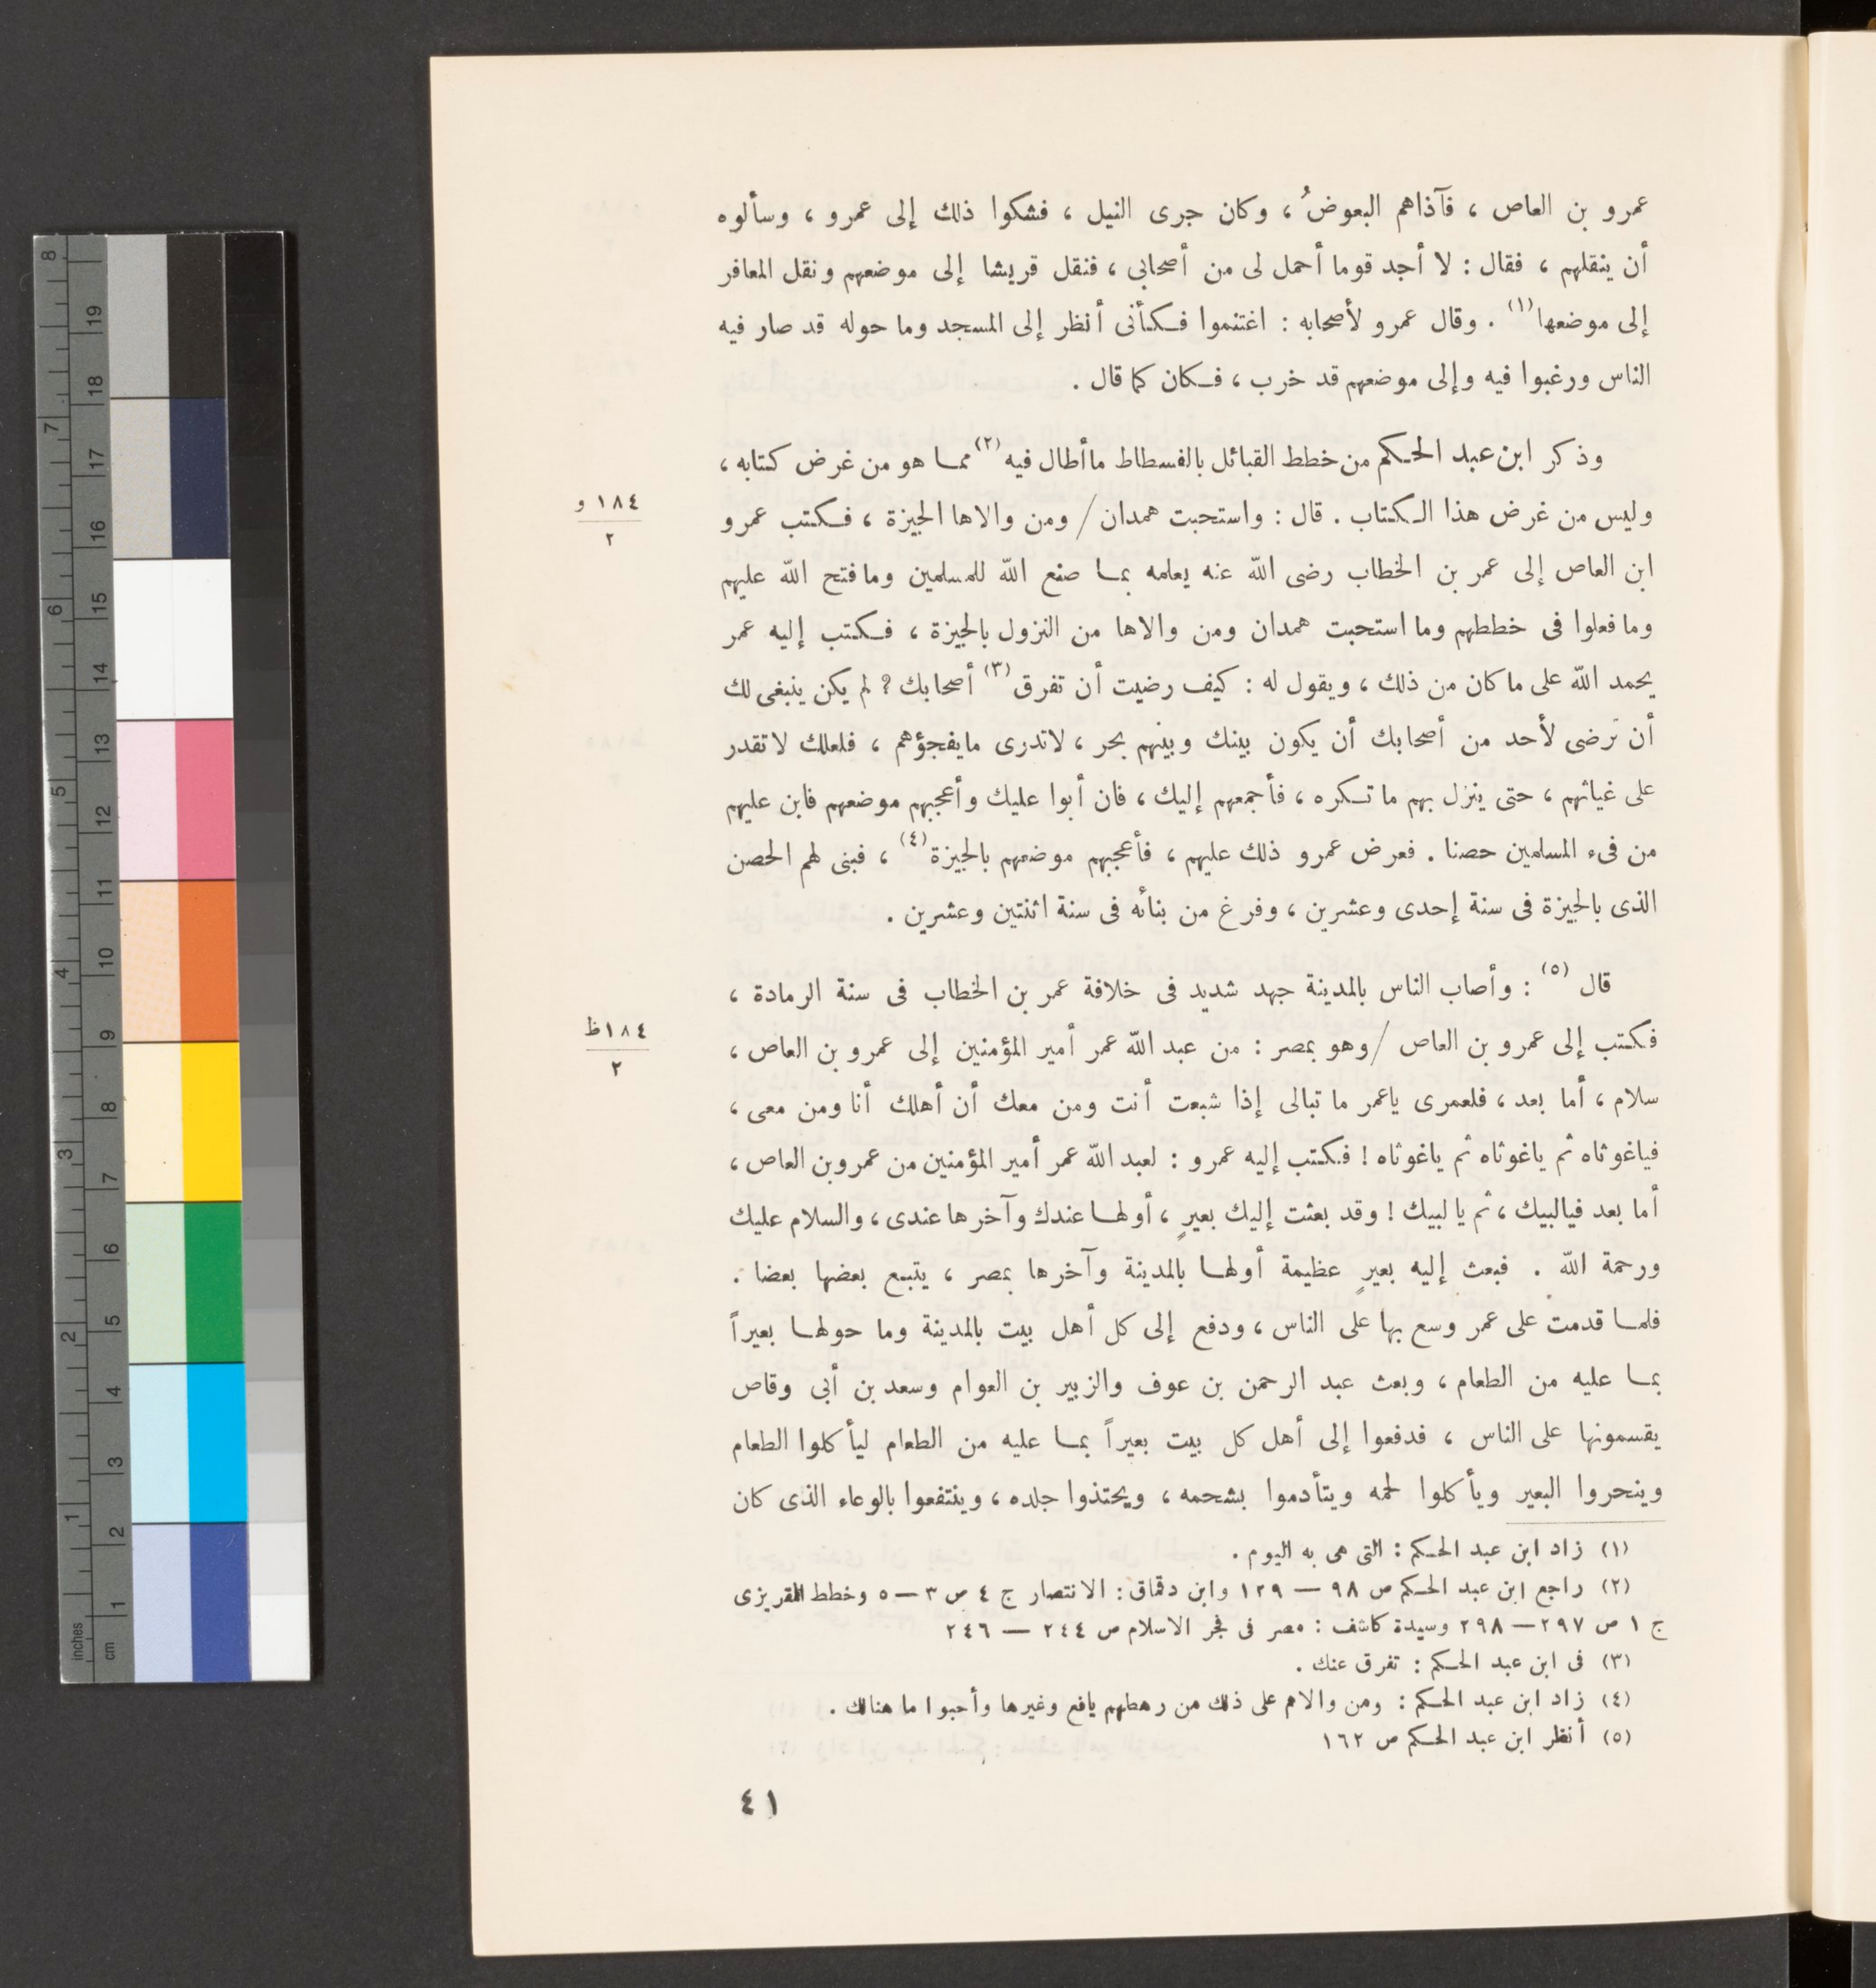 عمرو بن العاص ، فآذاهم البعوضُ ، وكان جرى النيل ، فشكوا ذلك إلى عمرو ، وسألوه
أن ينقلهم ، فقال : لا أجد قوما أحمل لى من أصحابى ، فنقل قريشا إلى موضعهم ونقل المعافر
إلى موضعها (١) . وقال عمرو لأصحابه : اغتنموا فكأنى أنظر إلى المسجد وما حوله قد صار فيه
الناس ورغبوا فيه وإلى موضعهم قد خرب ، فكان كما قال .
وذكر ابن عبد الحكم من خطط القبائل بالفسطاط ما أطال فيه (٢) مما هو من غرض كتابه ،
وليس من غرض هذا الكتاب . قال : واستحبت همدان / ومن والاها الجيزة ، فكتب عمرو
١٨٤ و
٢
ابن العاص إلى عمر بن الخطاب رضى الله عنه يعلمه بما صنع الله للمسلمين وما فتح الله عليهم
وما فعلوا فى خططهم وما استحبت همدان ومن والاها من النزول بالجيزة ، فكتب إليه عمر
يحمد الله على ما كان من ذلك ، ويقول له : كيف رضيت أن تفرق (٣) أصحابك ؟ لم يكن ينبغى لك
أن ترضى لأحد من أصحابك أن يكون بينك وبينهم بحر ، لا تدرى ما يفجؤهم ، فلعلك لا تقدر
على غياثهم ، حتى ينزل بهم ما تكره ، فأجمعهم إليك ، فان أبوا عليك وأعجبهم موضعهم فابن عليهم
من فىء المسلمين حصنا . فعرض عمرو ذلك عليهم ، فأعجبهم موضعهم بالجيزة (٤) ، فبنى لهم الحصن
الذى بالجيزة فى سنة إحدى وعشرين ، وفرغ من بنائه فى سنة اثنتين وعشرين .
قال (٥) : وأصاب الناس بالمدينة جهد شديد فى خلافة عمر بن الخطاب فى سنة الرمادة ،
فكتب إلى عمرو بن العاص / وهو بمصر : من عبد الله عمر أمير المؤمنين إلى عمرو بن العاص ،
١٨٤ظ
٢
سلام ، أما بعد ، فلعمرى ياعمر ما تبالى إذا شبعت أنت ومن معك أن أهلك أنا ومن معى ،
فياغوثاه ثم ياغوثاه ثم ياغوثاه ! فكتب إليه عمرو : لعبد الله عمر أمير المؤمنين من عمرو بن العاص ،
أما بعد فيالبيك ، ثم يا لبيك ! وقد بعثت إليك بعيرٍ ، أولها عندك وآخرها عندى ، والسلام عليك
ورحمة الله . فبعث إليه بعيرٍ عظيمة أولها بالمدينة وآخرها بمصر ، يتبع بعضها بعضا .
فلما قدمت على عمر وسع بها على الناس ، ودفع إلى كل أهل بيت بالمدينة وما حولها بعيراً
بما عليه من الطعام ، وبعث عبد الرحمن بن عوف والزبير بن العوام وسعد بن أبى وقاص
يقسمونها على الناس ، فدفعوا إلى أهل كل بيت بعيراً بما عليه من الطعام ليأكلوا الطعام
وينحروا البعير ويأكلوا لحمه ويتأدموا بشحمه ، ويحتذوا جلده ، وينتفعوا بالوعاء الذى كان
(١) زاد ابن عبد الحكم : التى هى به اليوم .
(٢) راجع ابن عبد الحكم ص ٩٨ — ١٢٩ وابن دقماق : الانتصار ج ٤ ص ٣ — ٥ وخطط المقريزى
ج ١ ص ٢٩٧ — ٢٩٨ وسيدة كاشف : مصر فى فجر الاسلام ص ٢٤٤ — ٢٤٦
(٣) فى ابن عبد الحكم : تفرق عنك .
(٤) زاد ابن عبد الحكم : ومن والاهم على ذلك من رهطهم يافع وغيرها وأحبوا ما هنالك .
(٥) أنظر ابن عبد الحكم ص ١٦٢
٤١
inches
1
2
3
4
5
6
7
8
cm
1
2
3
4
5
6
7
8
9
10
11
12
13
14
15
16
17
18
19